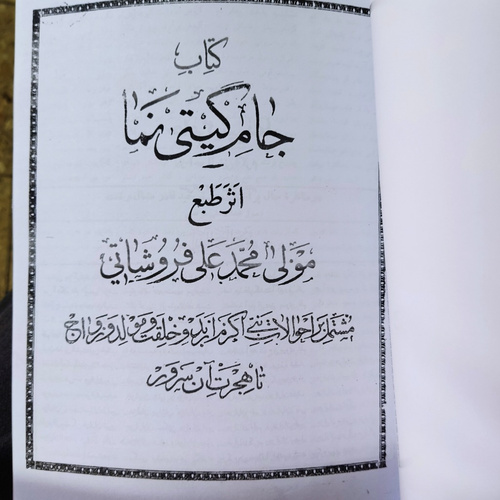 کتاب
جام گیتی نما
اثر طبع
مولی محمد علی فروشاتی
مشتمل بر احوالات نبی اکرم از بدو خلقت و مولد و زواج
تا هجرت آن سرور